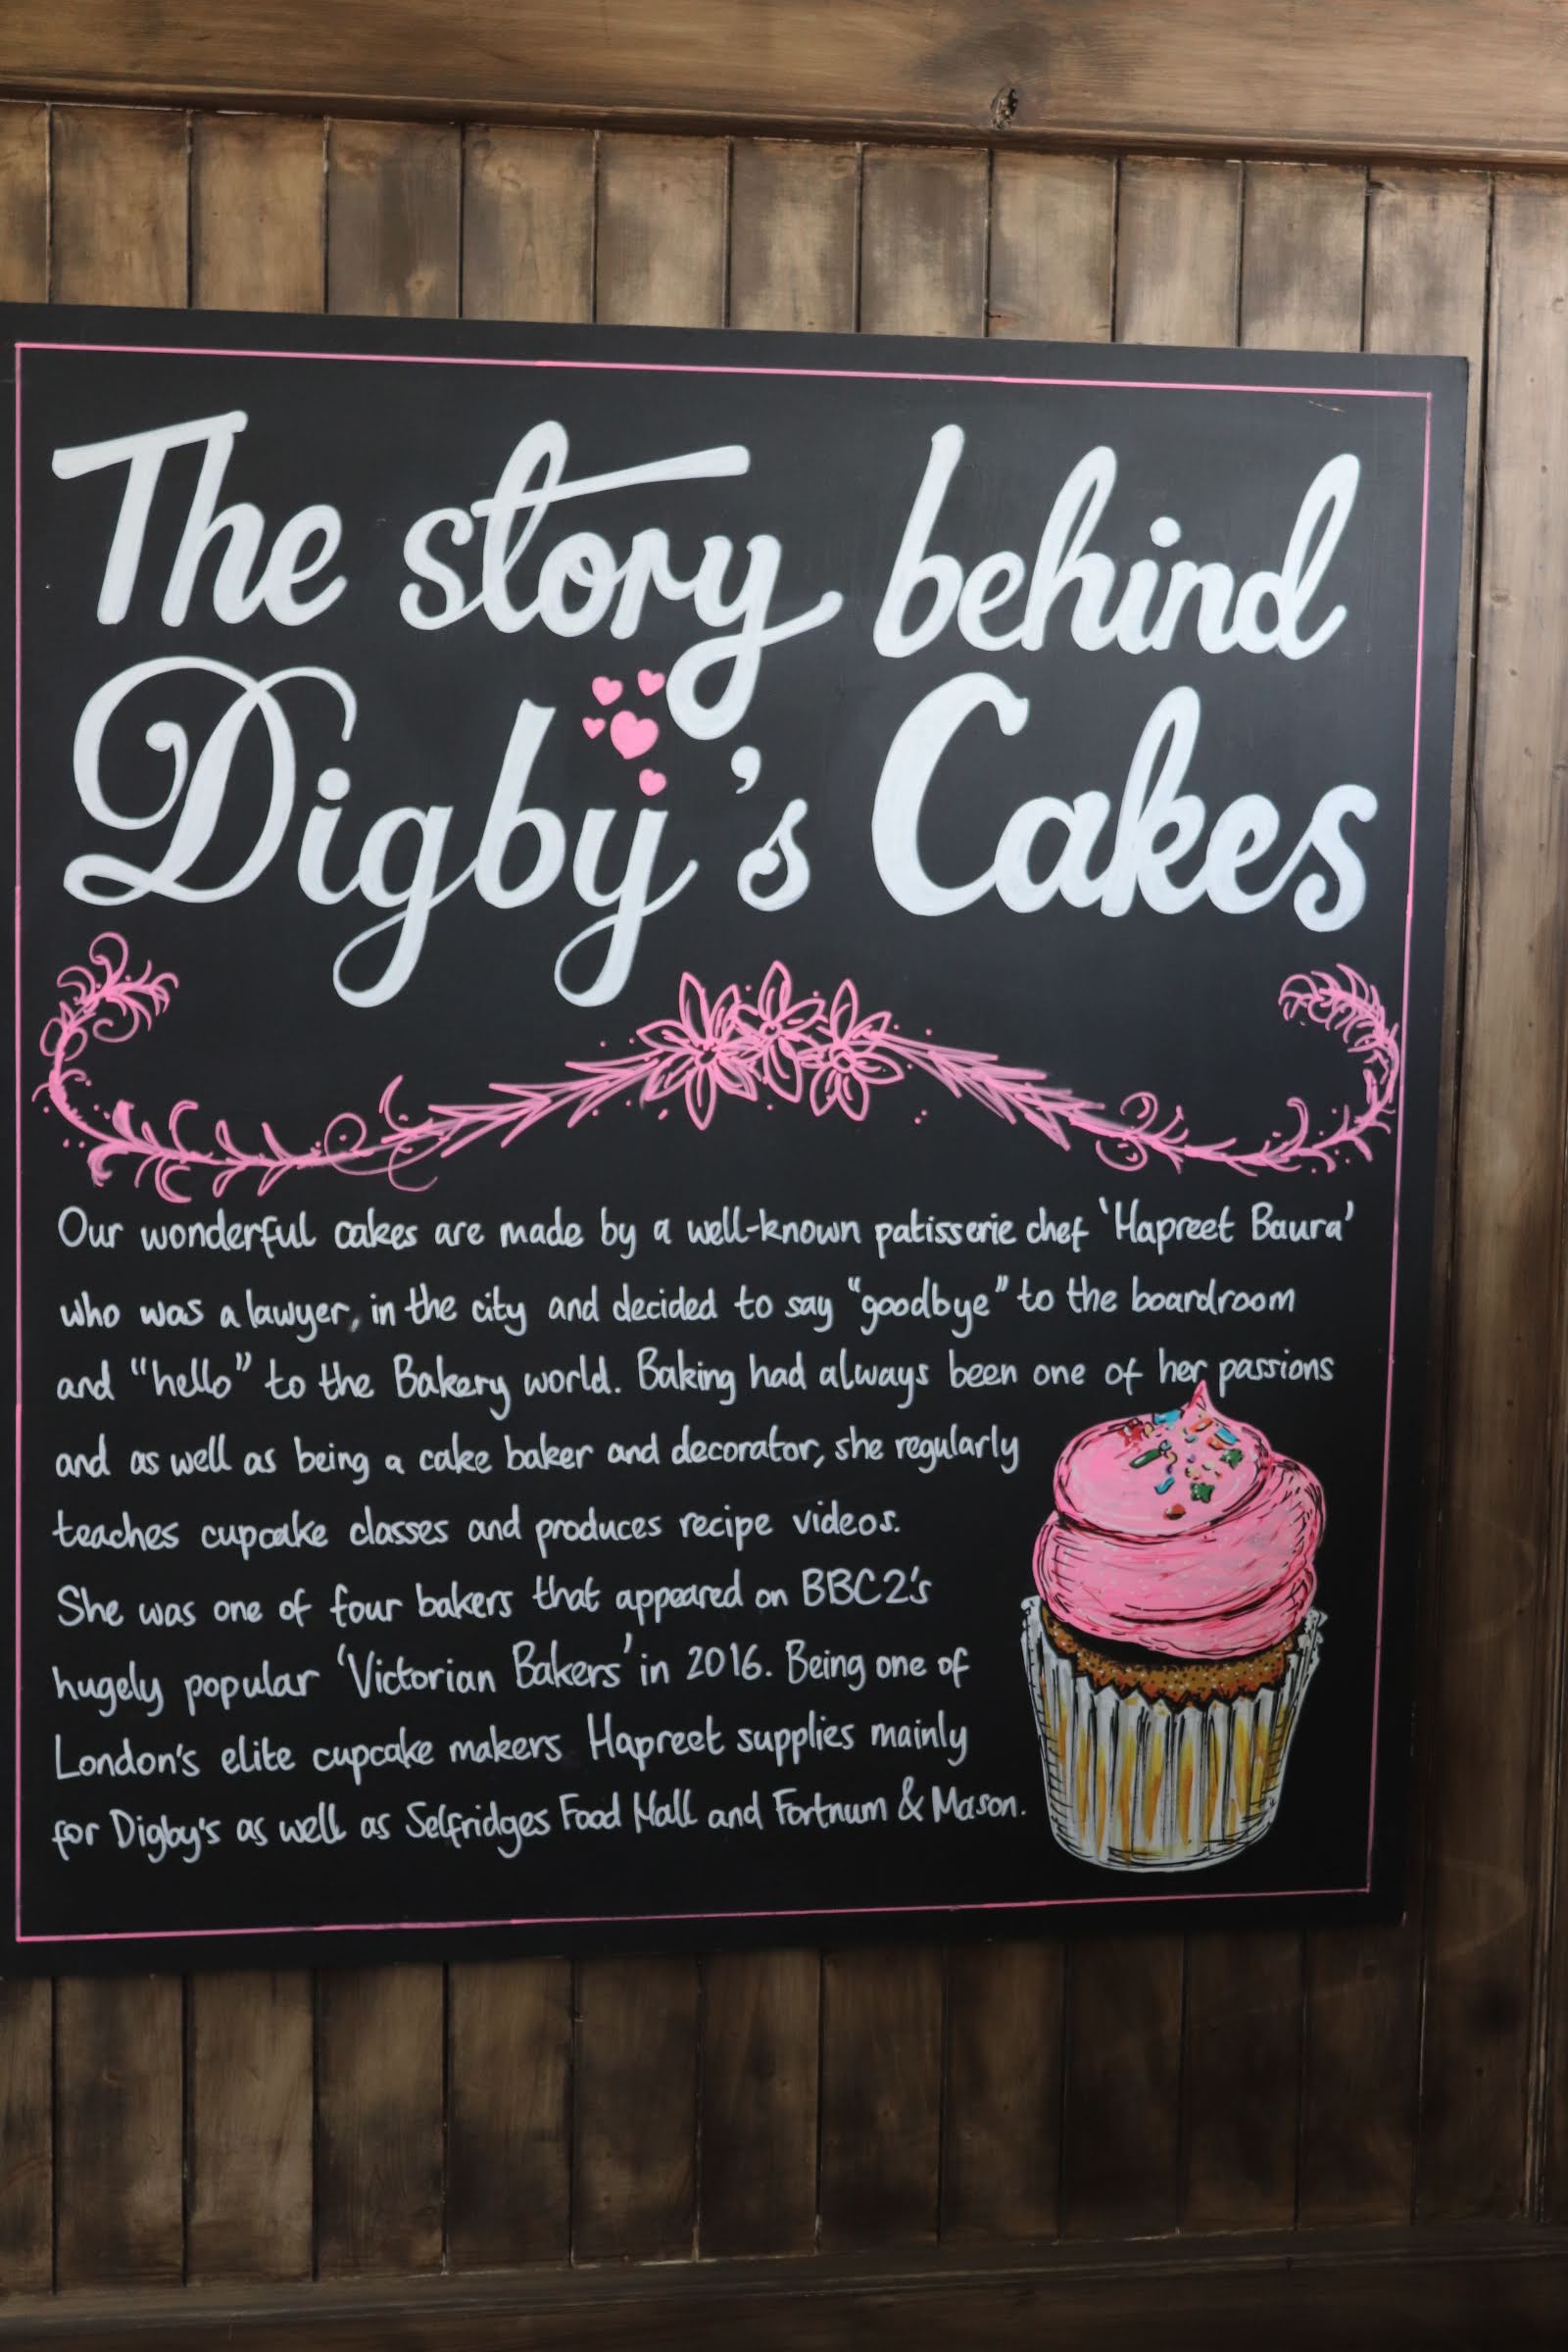 The story behind
Digby's Cakes
Our wonderful cakes are made by a well-known patisserie chef 'Hapreet Baura'
who was a lawyer, in the city and decided to say "goodbye" to the boardroom
and "hello" to the Bakery world. Baking had always been one of her passions
and as well as being a cake baker and decorator, she regularly
teaches cupcake classes and produces recipe videos.
She was one of four bakers that appeared on BBC2's
hugely popular 'Victorian Bakers' in 2016. Being one of
London's elite cupcake makers Hapreet supplies mainly
for Digby's as well as Selfridges Food Hall and Fortnum & Mason.